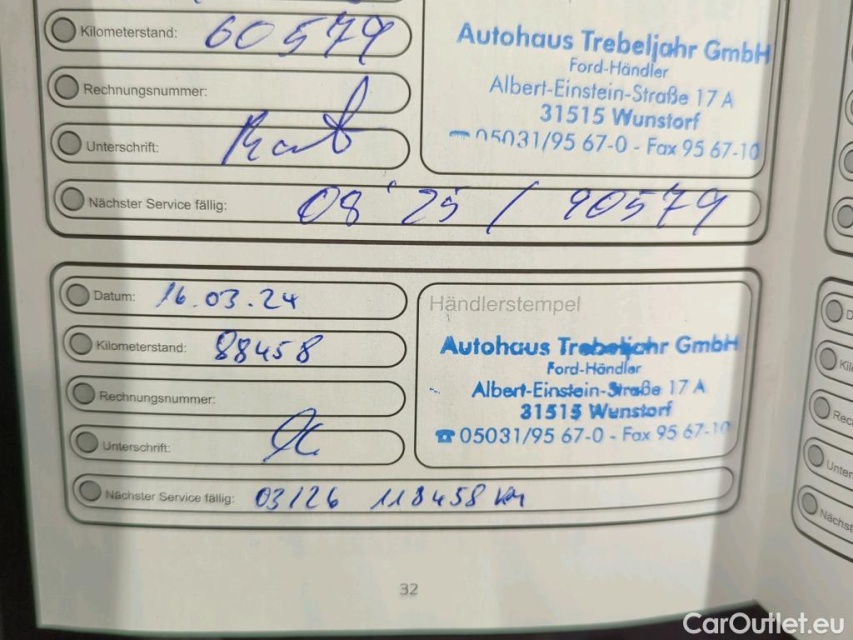 Kilometerstand: 60579
Autohaus Trebeljahr GmbH
Ford-Händler
Rechnungsnummer:
Albert-Einstein-Straße 17 A
31515 Wunstorf
Unterschrift:
05031/95 67-0 - Fax 95 67-10
Nächster Service fällig: 08'25 / 90579
Datum: 16.03.24
Händlerstempel
Kilometerstand: 88458
Autohaus Trebeljahr GmbH
Ford-Händler
Rechnungsnummer:
Albert-Einstein-Straße 17 A
31515 Wunstorf
Unterschrift:
☎ 05031/95 67-0 - Fax 95 67-10
Nächster Service fällig: 03/26 118458 km
32
CarOutlet.eu